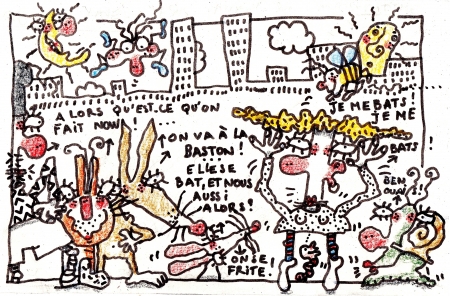 ALORS QU'EST.CE QU'ON
FAIT NOW !
ON VA À LA
BASTON !
ELLE SE
BAT, ET NOUS
AUSSI
ALORS ?
ON SE !
FRITE !
JE ME BATS
JE ME
BATS
BEN
OUAI